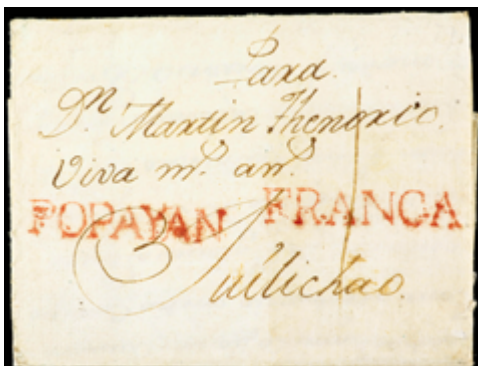 Para
Dn Martin Thenorio
Viva ms. as.
POPAYAN FRANCA
Quilichao